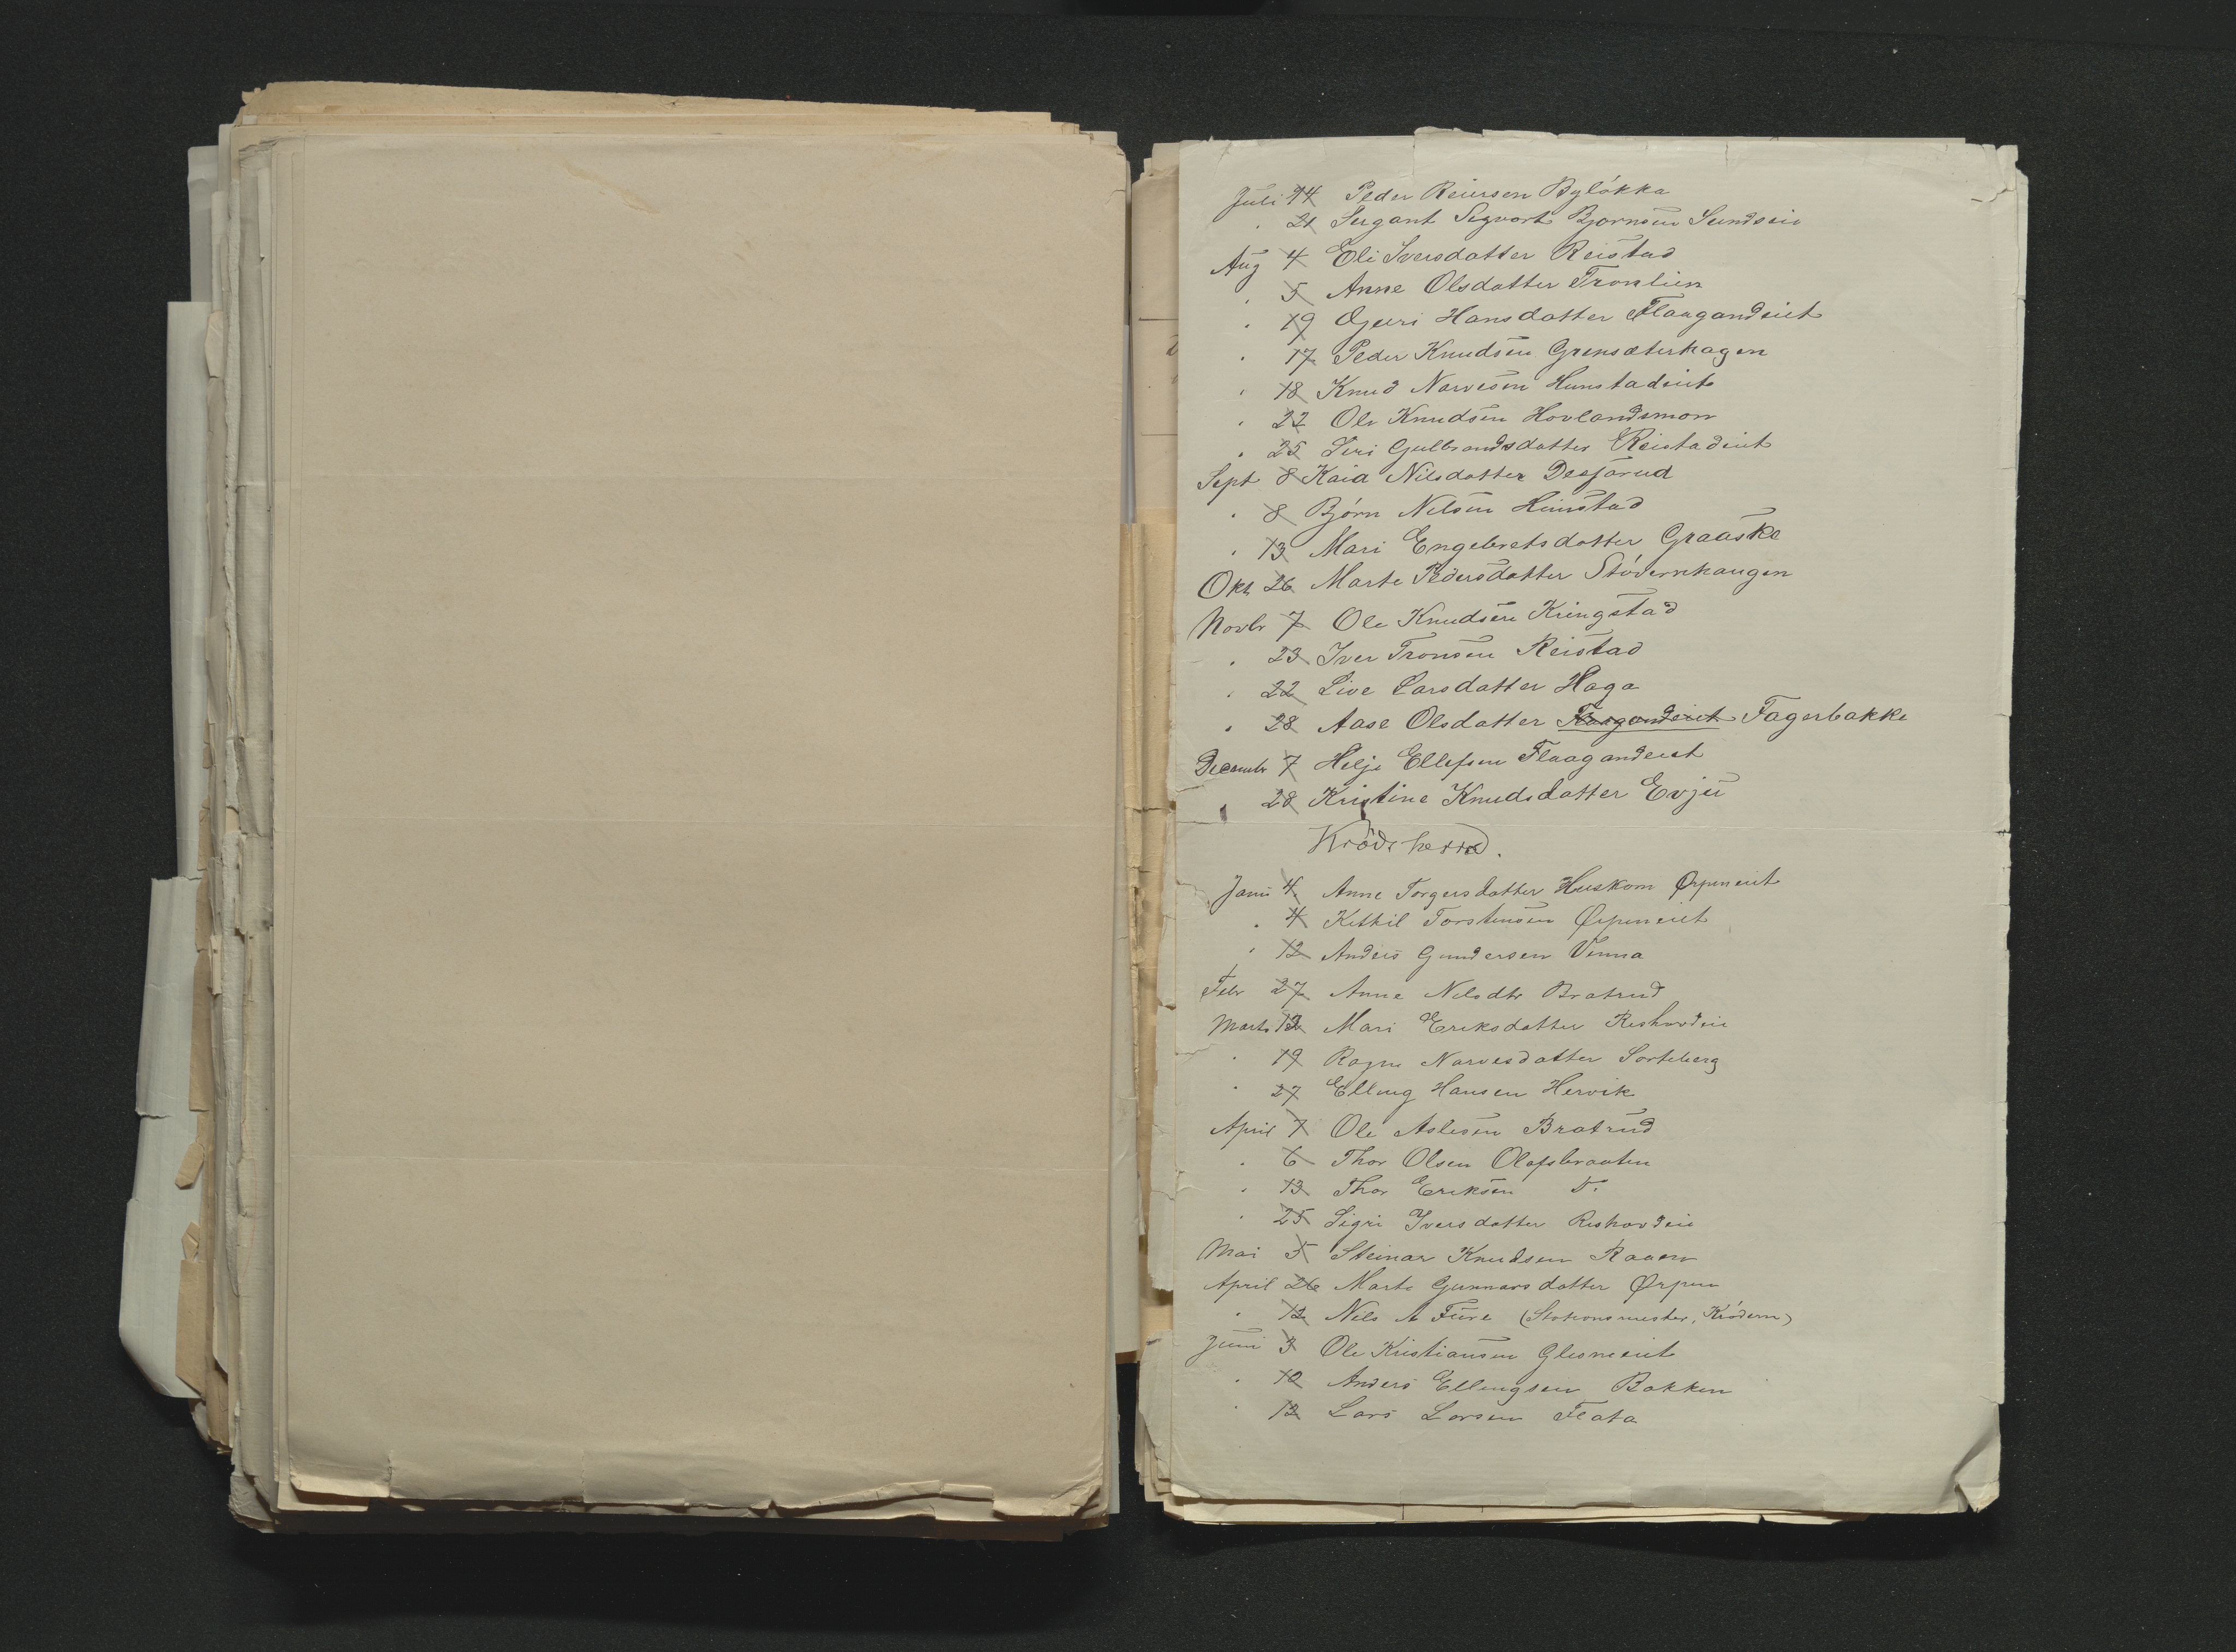 Juli 14 Peder Reiersen Byløkka
" 21 Sergant Segvort Bjørnsen Sundseie
Aug 4 Eli Iversdatter Reistad
" 5 Anne Olsdatter Tronlien
" 19 Gjuri Hansdatter Flaagandeiet
" 17 Peder Knudsen Grensæterhagen
" 18 Knud Narvesen Hunstadeiet
" 22 Ole Knudsen Hovlandsmon
" 25 Siri Gulbrandsdatter Reistadeiet
Sept 8 Kaia Nilsdatter
" 8 Bjørn Nelsen Hunstad
" 13 Mari Engebretsdatter Graaske
Okt 26 Marte Pedersdatter Støvernhaugen
Novbr 7 Ole Knudsen Kringstad
" 23 Iver Tronsen Reistad
" 22 Live Larsdatter Haga
" 28 Aase Olsdatter Flaagandeiet Fagerbakke
Decembr 7 Helje Ellefsen Flaagandeiet
" 28 Kristine Knudsdatter Evju
Krødsherred.
Janu 4 Anne Torgersdatter Huskom Ørpeneiet
" 4 Kethil Torstensen Ørpeneiet
" 12 Anders Gundersen Vinna
Febr 27 Anne Nelsdtr Bratrud
Marts 12 Mari Eriksdatter Reshovdeie
" 19 Ragne Narvesdatter Sorteberg
" 27 Elling Hansen Hervik
April 7 Ole Aslesen Bratrud
" 6 Thor Olsen Olafsbraaten
" 13 Thor Eriksen D.
" 25 Sigri Iversdatter Reshovdeie
Mai 5 Steinar Knudsen Raaen
April 26 Marte Gunnarsdatter Ørpen
" 12 Nils A Fure (Stationsmester, Krødern)
Juni 3 Ole Kristiansen Glesneeiet
" 10 Anders Ellingsen Bakken
" 13 Lars Larsen Flata